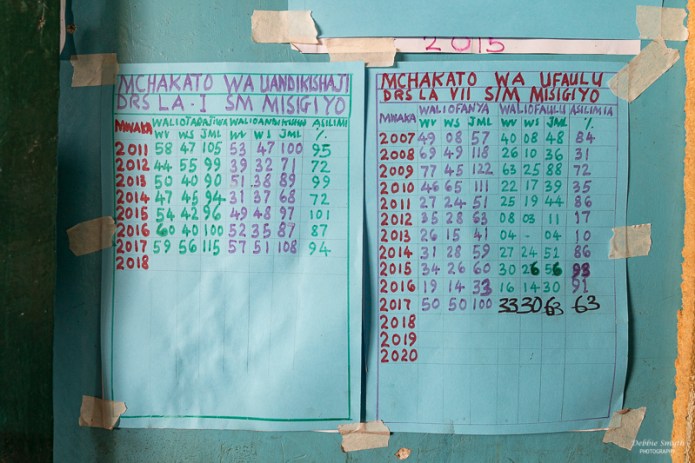 2015
MCHAKATO WA UANDIKISHAJI
DRS LA - I SM MISIGIYO
MWAKA WALIOTARAJIWA WALIOANDIKISHWA ASILIMIA
WV WS JML WV WS JML %
2011 58 47 105 53 47 100 95
2012 44 55 99 39 31 71 72
2013 50 40 90 51 38 89 99
2014 47 45 94 31 37 68 72
2015 54 42 96 49 48 97 101
2016 60 40 100 52 35 87 87
2017 59 56 115 57 51 108 94
2018
MCHAKATO WA UFAULU
DRS LA VII S/M MISIGIYO
MWAKA WALIOFANYA WALIOFAULU ASILIMIA
WV WS JML WV WS JML %
2007 49 08 57 40 08 48 84
2008 69 49 118 26 10 36 31
2009 77 45 122 63 25 88 72
2010 46 65 111 22 17 39 35
2011 27 24 51 25 19 44 86
2012 35 28 63 08 03 11 17
2013 26 15 41 04 - 04 10
2014 31 28 59 27 24 51 86
2015 34 26 60 30 26 56 93
2016 19 14 33 16 14 30 91
2017 50 50 100 33 30 63 63
2018
2019
2020
Debbie Smyth
PHOTOGRAPHY